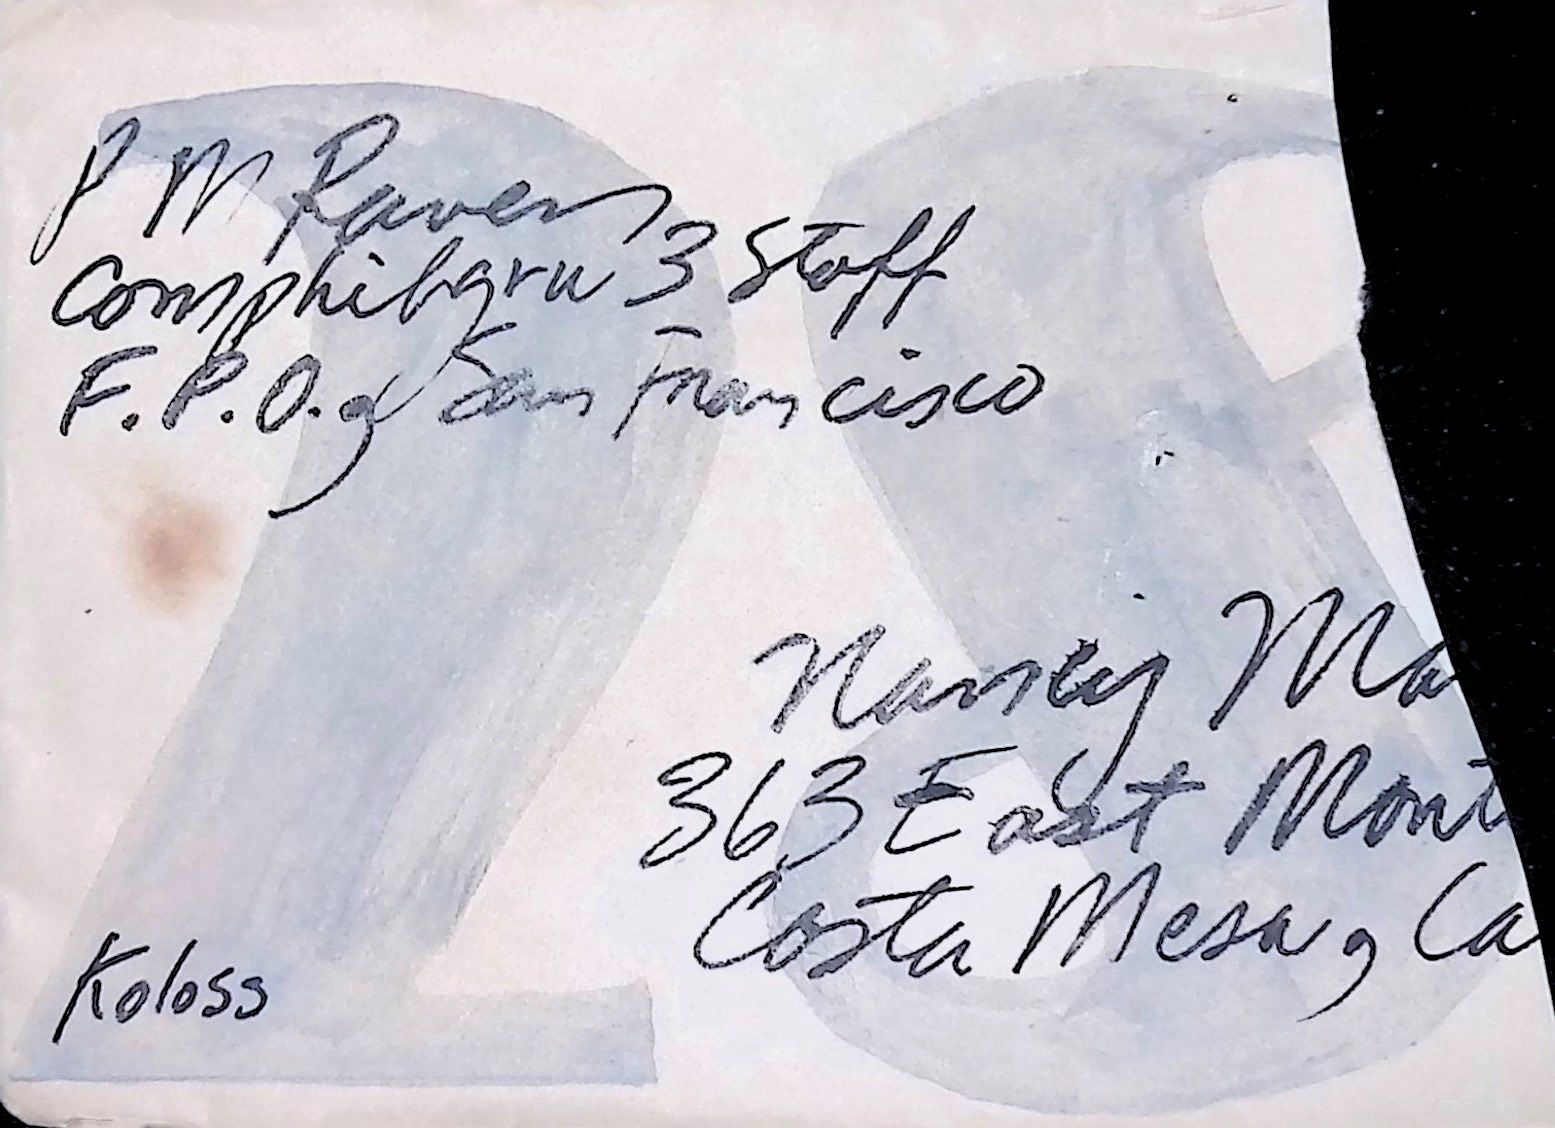 P M Raven
Comphibgru 3 Staff
F.P.O., San Francisco
28
Nancy Ma
363 East Mont
Costa Mesa, Ca
Koloss